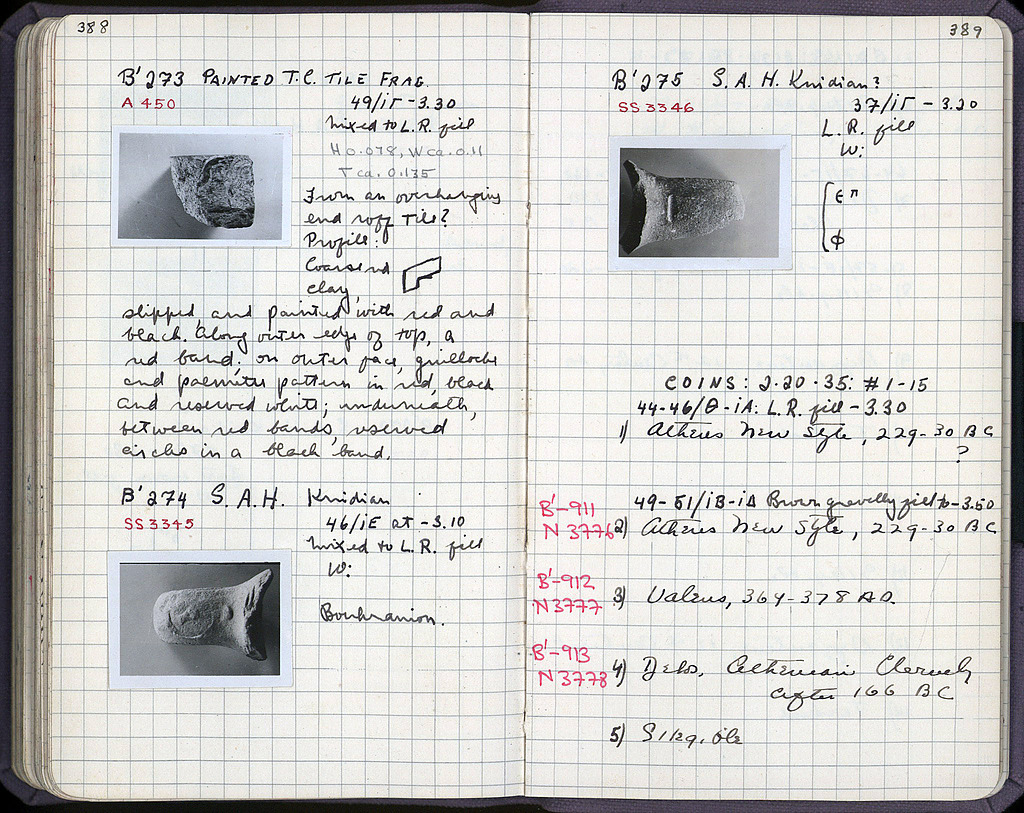 388
B'273 PAINTED T.C. TILE FRAG.
A 450
49/ΙΓ -3.30
Mixed to L.R. fill
H 0.078, W ca. 0.11
T ca. 0.135
From an overhanging
end roof Tile?
Profile:
Coarse red
clay
slipped, and painted with red and
black. Along outer edge of top, a
red band; on outer face, guilloche
and palmette pattern in red, black
and reserved white; underneath,
between red bands, reserved
circles in a black band.
B'274 S.A.H. Knidian
SS 3345
46/ΙΕ at -3.10
Mixed to L.R. fill
W:
Boukranion.
389
B'275 S.A.H. Knidian?
SS 3346
37/ΙΓ -3.20
L.R. fill
W:
Є π
ϕ
COINS: 2.20.35: #1-15
44-46/Θ-ΙΑ: L.R. fill -3.30
1) Athens New Style, 229-30 BC
?
B'-911
49-51/ΙΒ-ΙΔ Brown gravelly fill to -3.50
N 3776 2) Athens New Style, 229-30 BC
B'-912
N 3777 3) Valens, 364-378 AD.
B'-913
N 3778 4) Delos, Athenian Cleruch
after 166 BC
5)